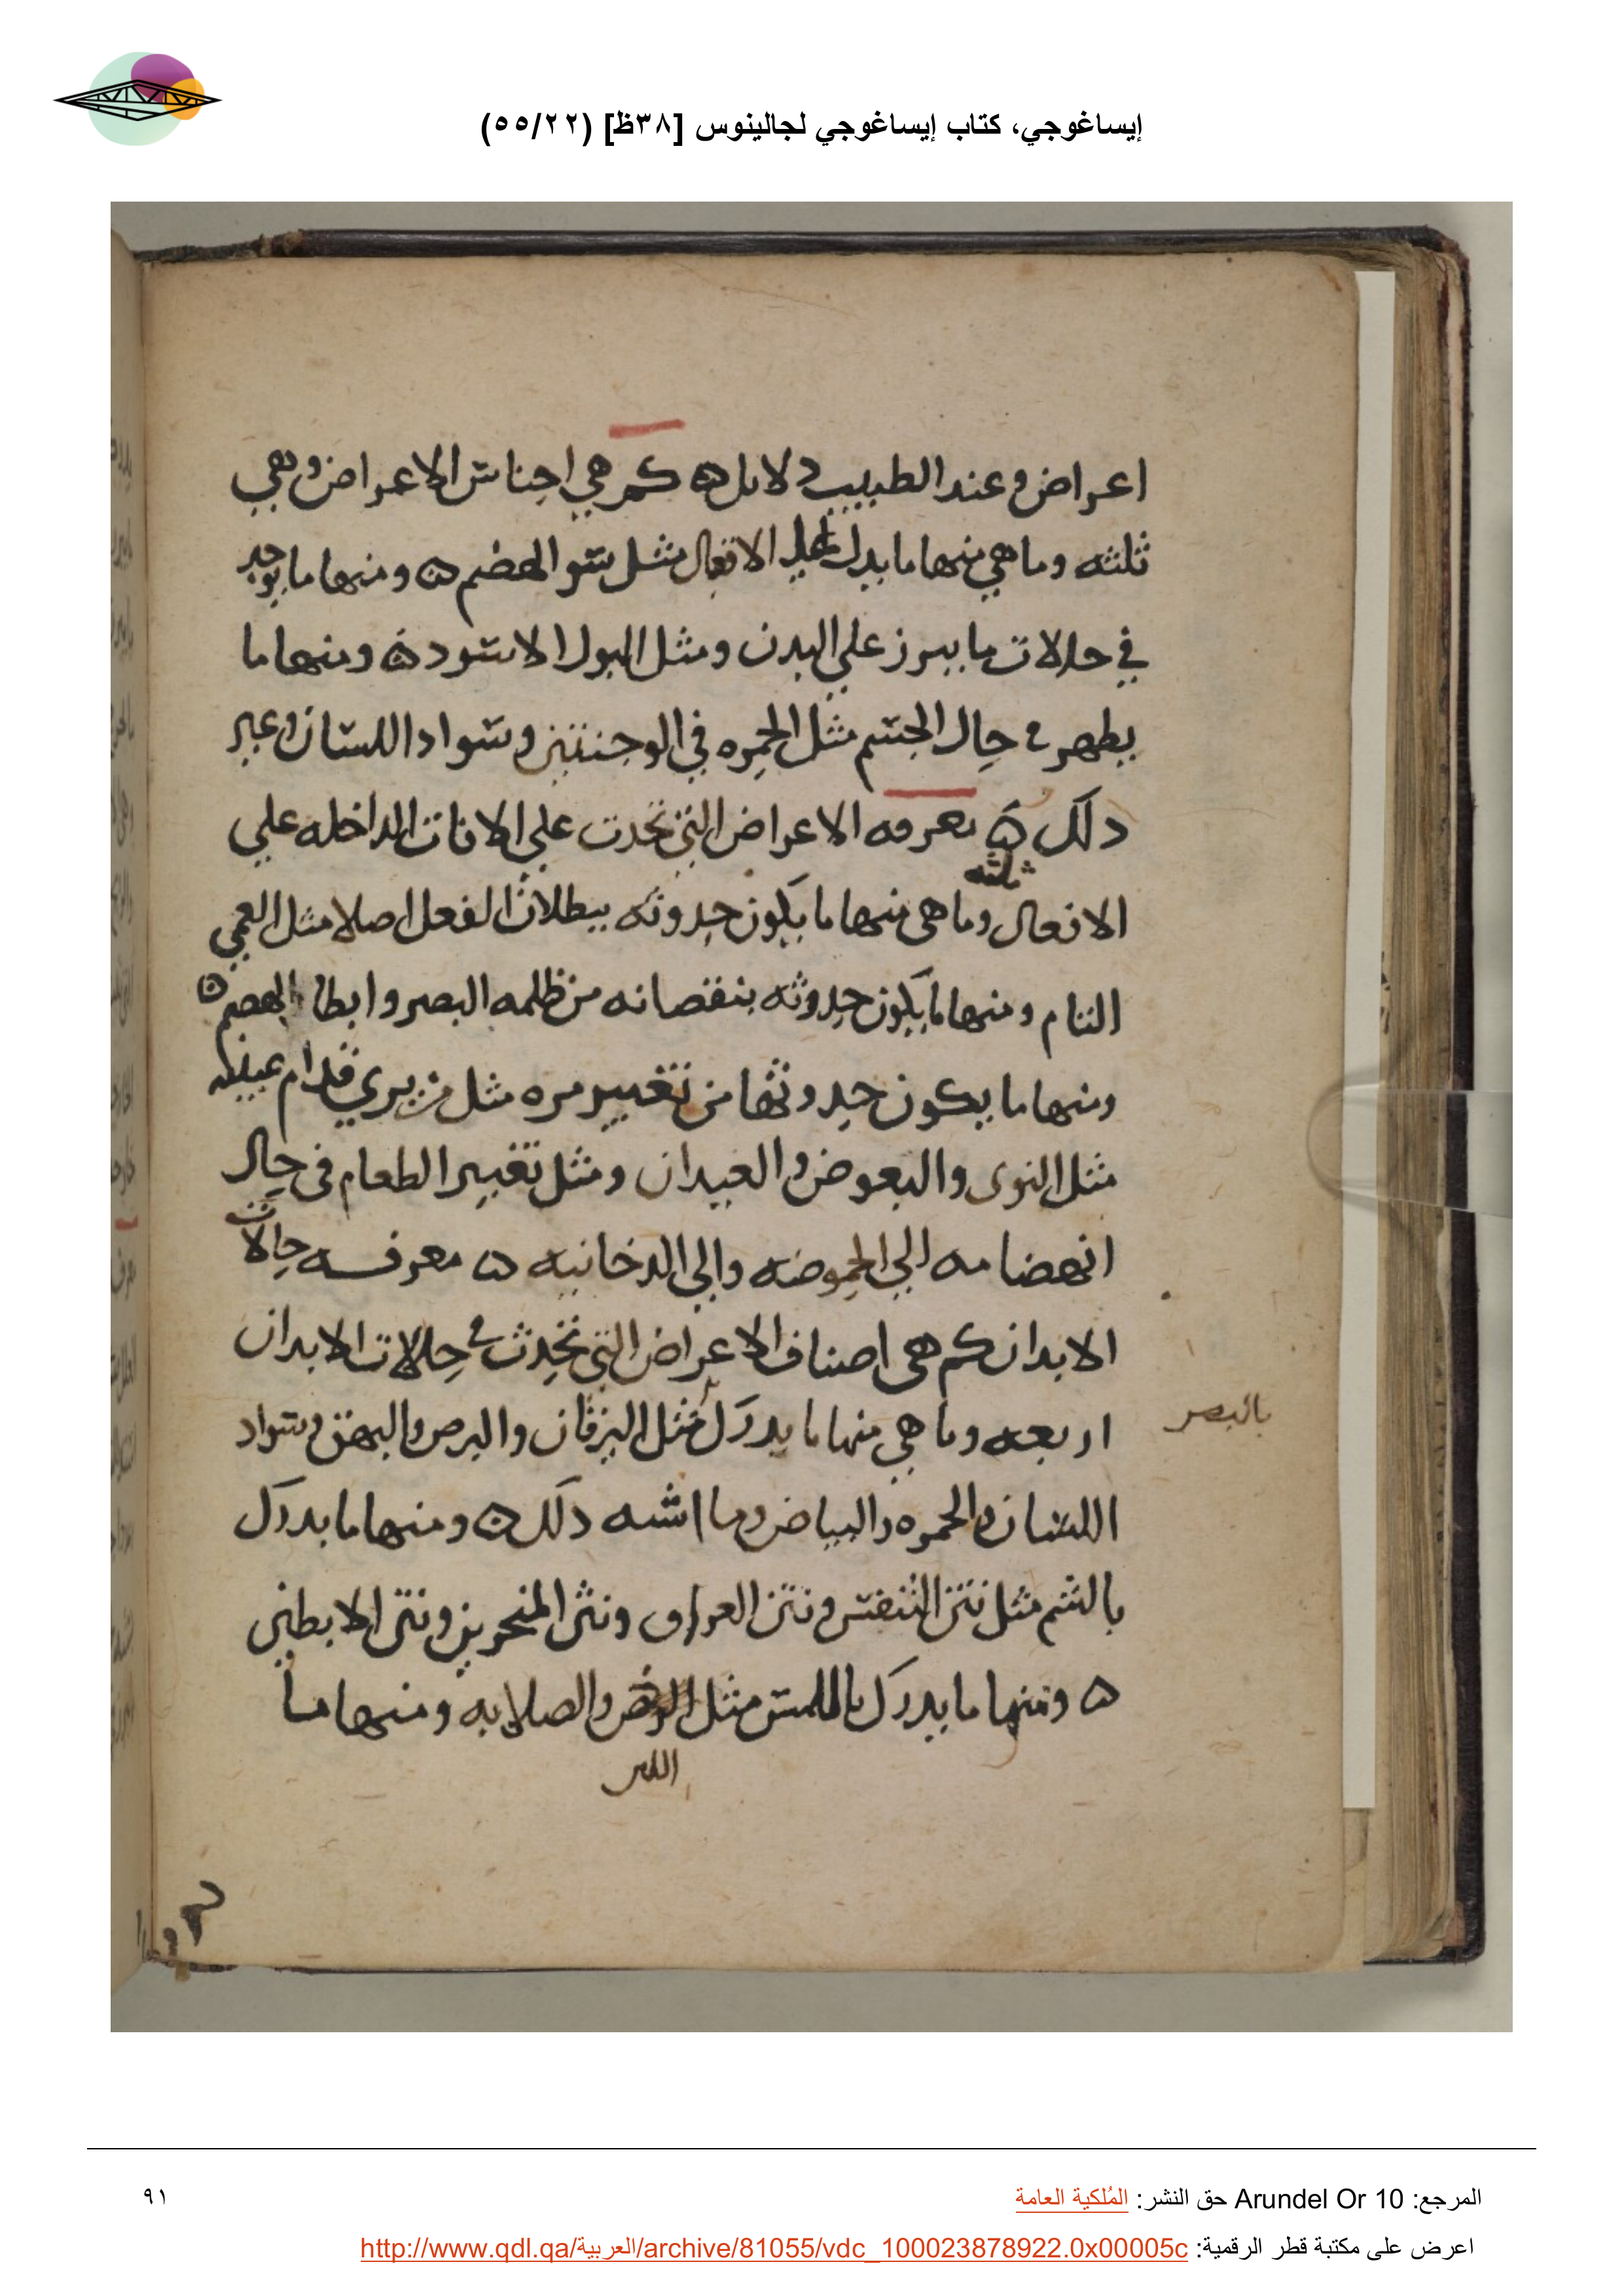 إيساغوجي، كتاب إيساغوجي لجالينوس [٣٨ظ] (٥٥/٢٢)
اعراض وعند الطبيب دلايل ه كم هي اجناس الاعراض وهي
ثلثه وما هي منها ما يدل علي الافعال مثل سو الهضم ه ومنها ما يوجد
في حالات ما يبرز علي البدن ومثل البول الاسود ه ومنها ما
يظهر في حال الجسم مثل الحمره في الوجنتين وسواد اللسان وغير
دلك ه معرفه الاعراض التي تحدث علي الافات الداخله علي
ثلثه
الافعال وما هى منها ما يكون حدوثه ببطلان الفعل اصلا مثل العمي
التام ومنها ما يكون حدوثه بنقصانه من ظلمه البصر وابطا الهضم ه
ومنها ما يكون حدوثها من تغيير مره مثل من يري قدام عينيه
مثل النوى والبعوض والعيدان ومثل تغيير الطعام فى حال
انهضامه الي الحموضه والي الدخانيه ه معرفه حالات
الابدان كم هى اصناف الاعراض التي تحدث في حالات الابدان
اربعه وما هي منها ما يدرك مثل اليرقان والبرص والبهق وسواد
بالبصر
اللسان والحمره والبياض وما اشبه دلك ه ومنها ما يدرك
بالشم مثل نتن التنفس ونتن العراق ونتن المنخرين ونتن الابطين
ه ومنها ما يدرك باللمس مثل والصلابه ومنها ما
المرجع: Arundel Or 10 حق النشر: المُلكية العامة
٩١
اعرض على مكتبة قطر الرقمية: http://www.qdl.qa/العربية/archive/81055/vdc_100023878922.0x00005c